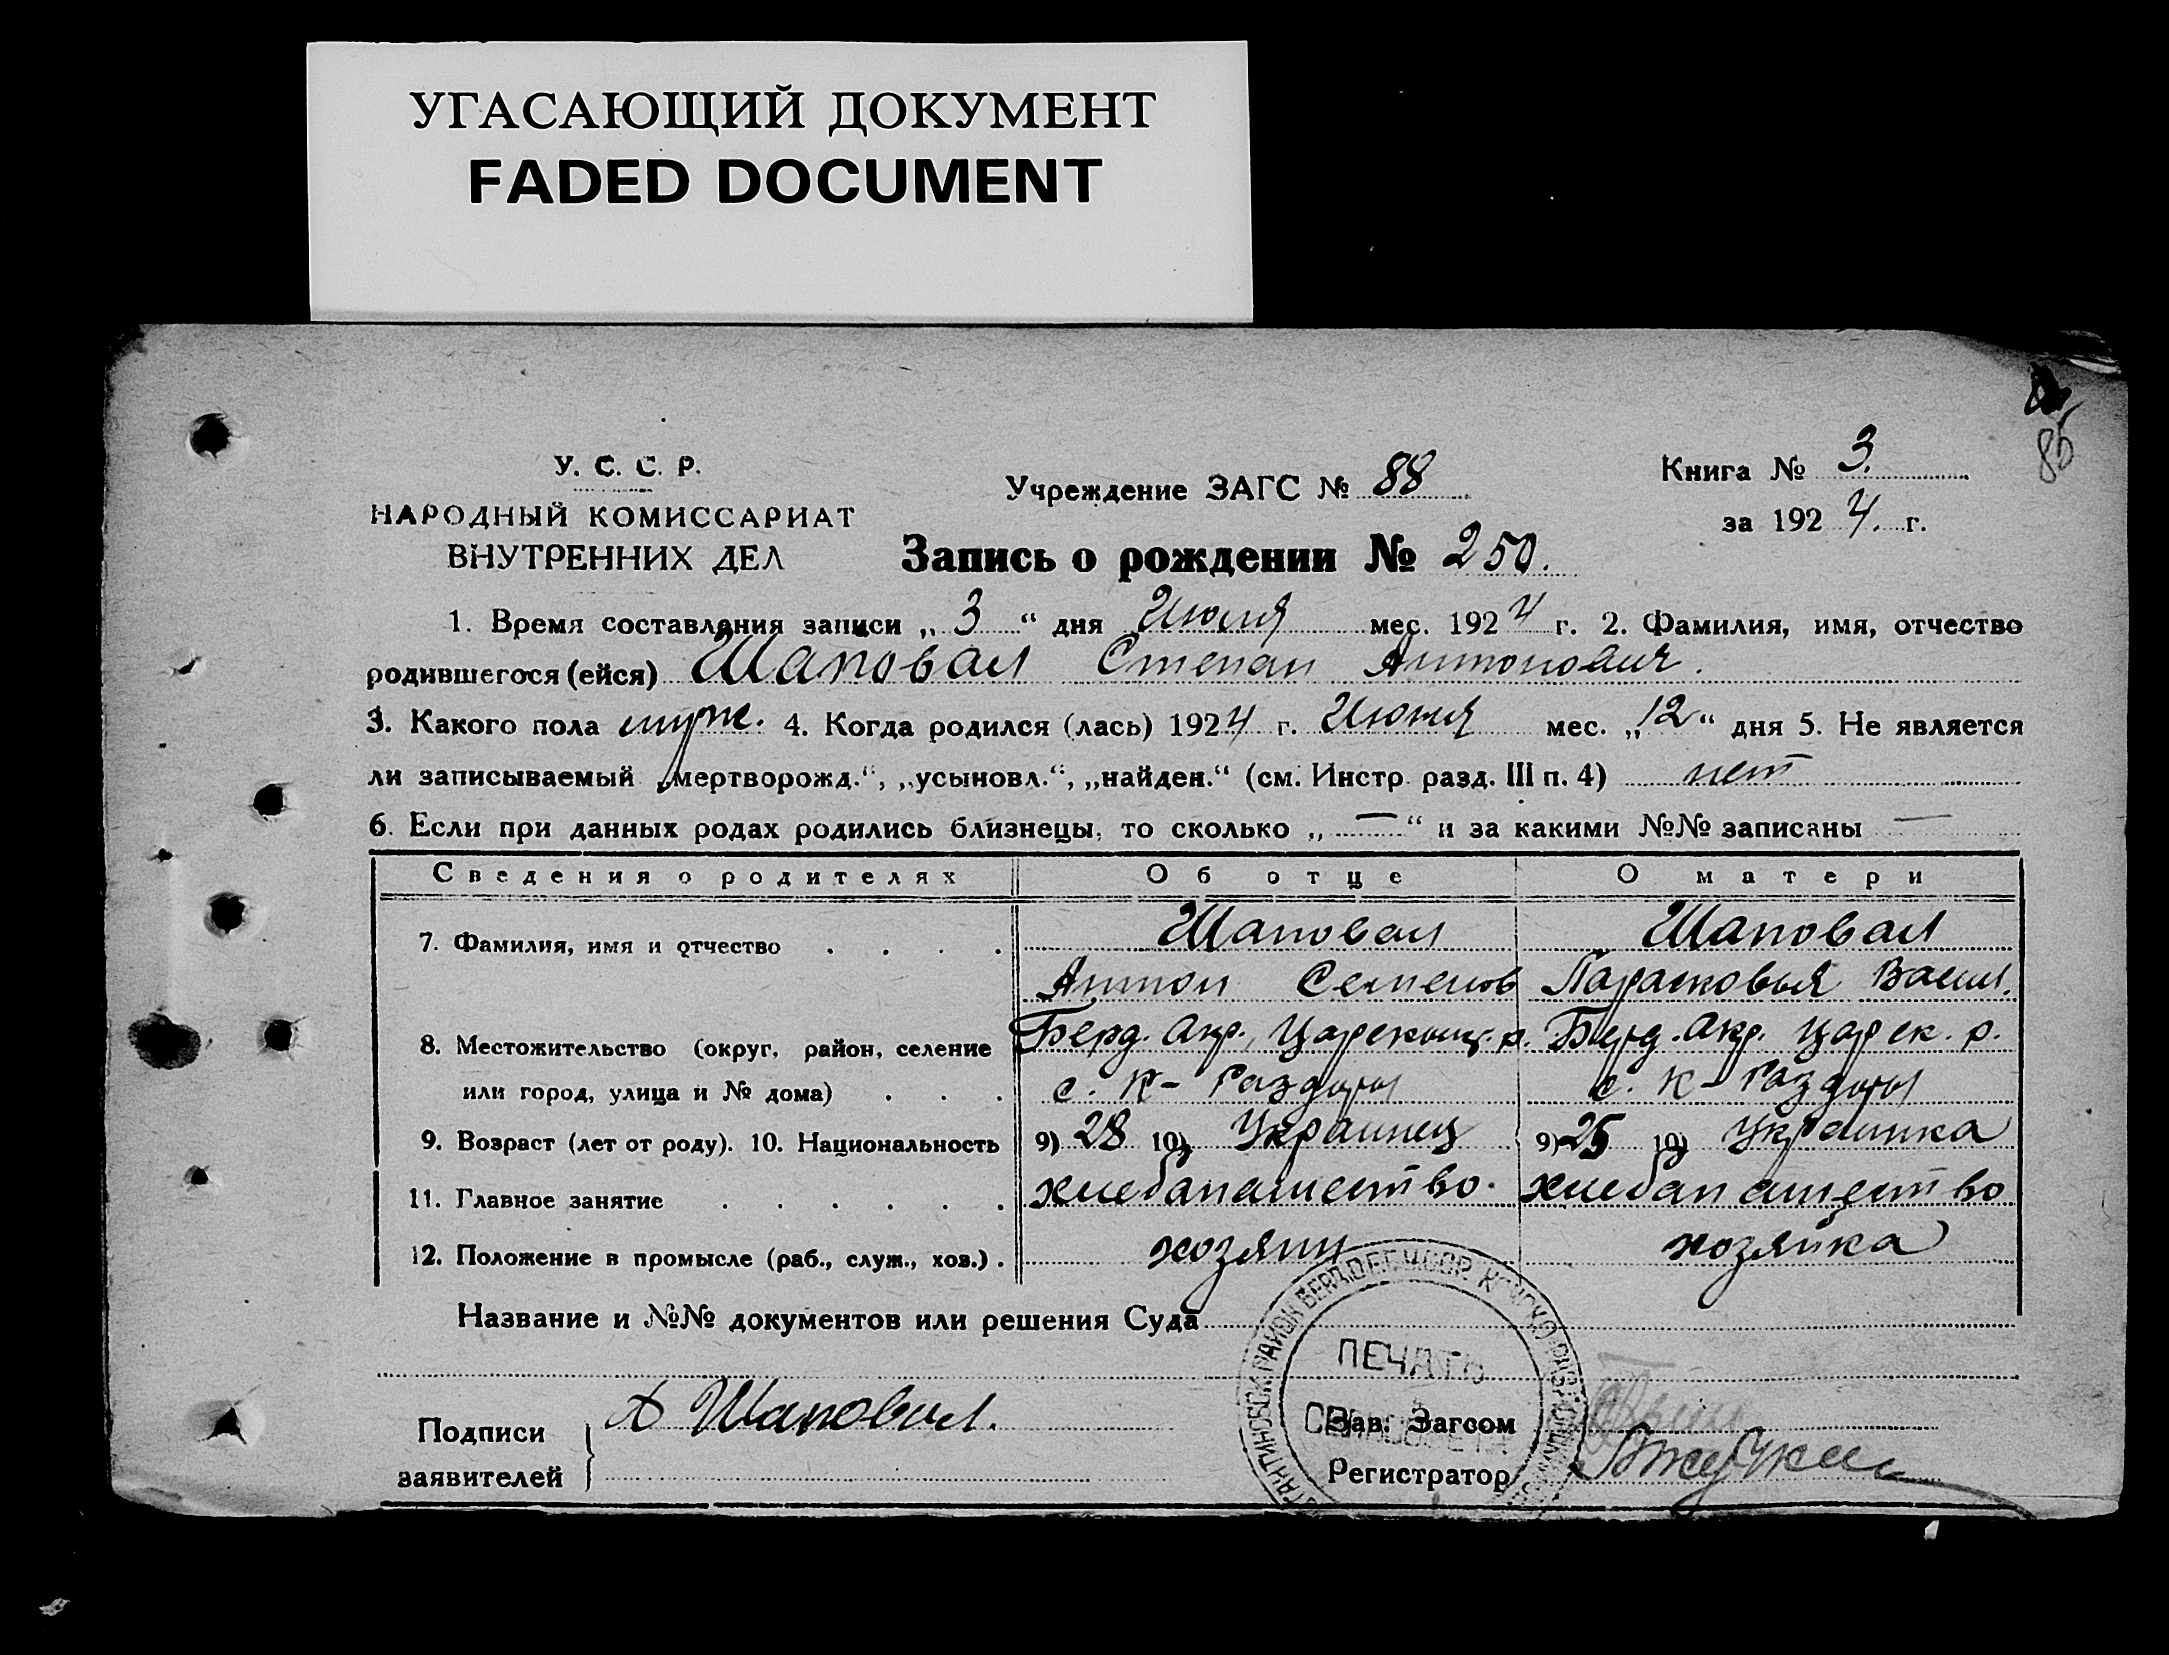 УГАСАЮЩИЙ ДОКУМЕНТ
FADED DOCUMENT
85
У. С. С. Р.
НАРОДНЫЙ КОМИССАРИАТ
ВНУТРЕННИХ ДЕЛ
Учреждение ЗАГС № 88
Книга № 3.
за 1924. г.
Запись о рождении № 250.
1. Время составления записи „ 3 “ дня Июля мес. 1924 г. 2. Фамилия, имя, отчество
родившегося (ейся) Шаповал Степан Антонович.
3. Какого пола муж. 4. Когда родился (лась) 1924 г. Июня мес. „12“ дня 5. Не является
ли записываемый „мертворожд.“, „усыновл.“, „найден.“ (см. Инстр. разд. III п. 4) нет
6. Если при данных родах родились близнецы, то сколько „ — “ и за какими №№ записаны —
Сведения о родителях Об отце О матери
7. Фамилия, имя и отчество . . . . Шаповал Шаповал
Антон Семенов Парасковья Васил.
8. Местожительство (округ, район, селение Берд. Окр., Царекон. р. Берд. Окр. Царек. р.
или город, улица и № дома) . . . с. К-Раздоры с. К-Раздоры
9. Возраст (лет от роду). 10. Национальность 9) 28 10) Украинец 9) 25 10) Украинка
11. Главное занятие . . . . . . хлебапашество. хлебапашество
12. Положение в промысле (раб., служ., хоз.) . хозяин хозяйка
Название и №№ документов или решения Суда
ПЕЧАТЬ
Подписи
заявителей
А Шаповал.
Зав. Загсом
Регистратор